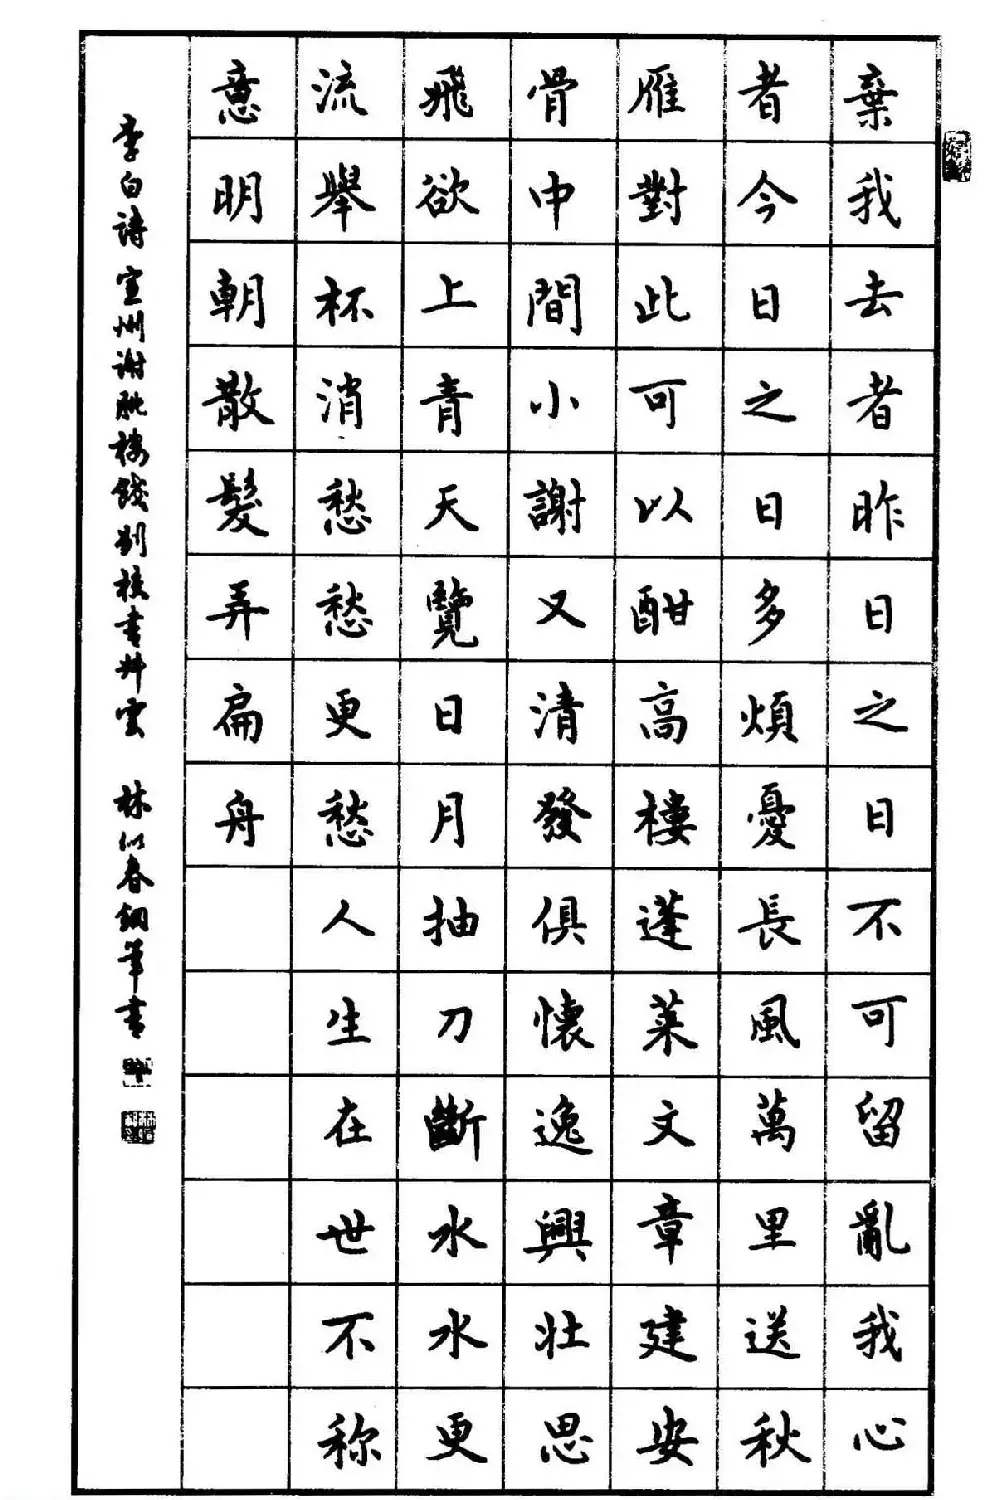 棄我去者昨日之日不可留亂我心
者今日之日多煩憂長風萬里送秋
雁對此可以酣高樓蓬萊文章建安
骨中間小謝又清發俱懷逸興壯思
飛欲上青天覽日月抽刀斷水水更
流舉杯消愁愁更愁人生在世不称
意明朝散髮弄扁舟
李白詩 宣州謝朓樓餞别校書叔雲 林似春鋼筆書